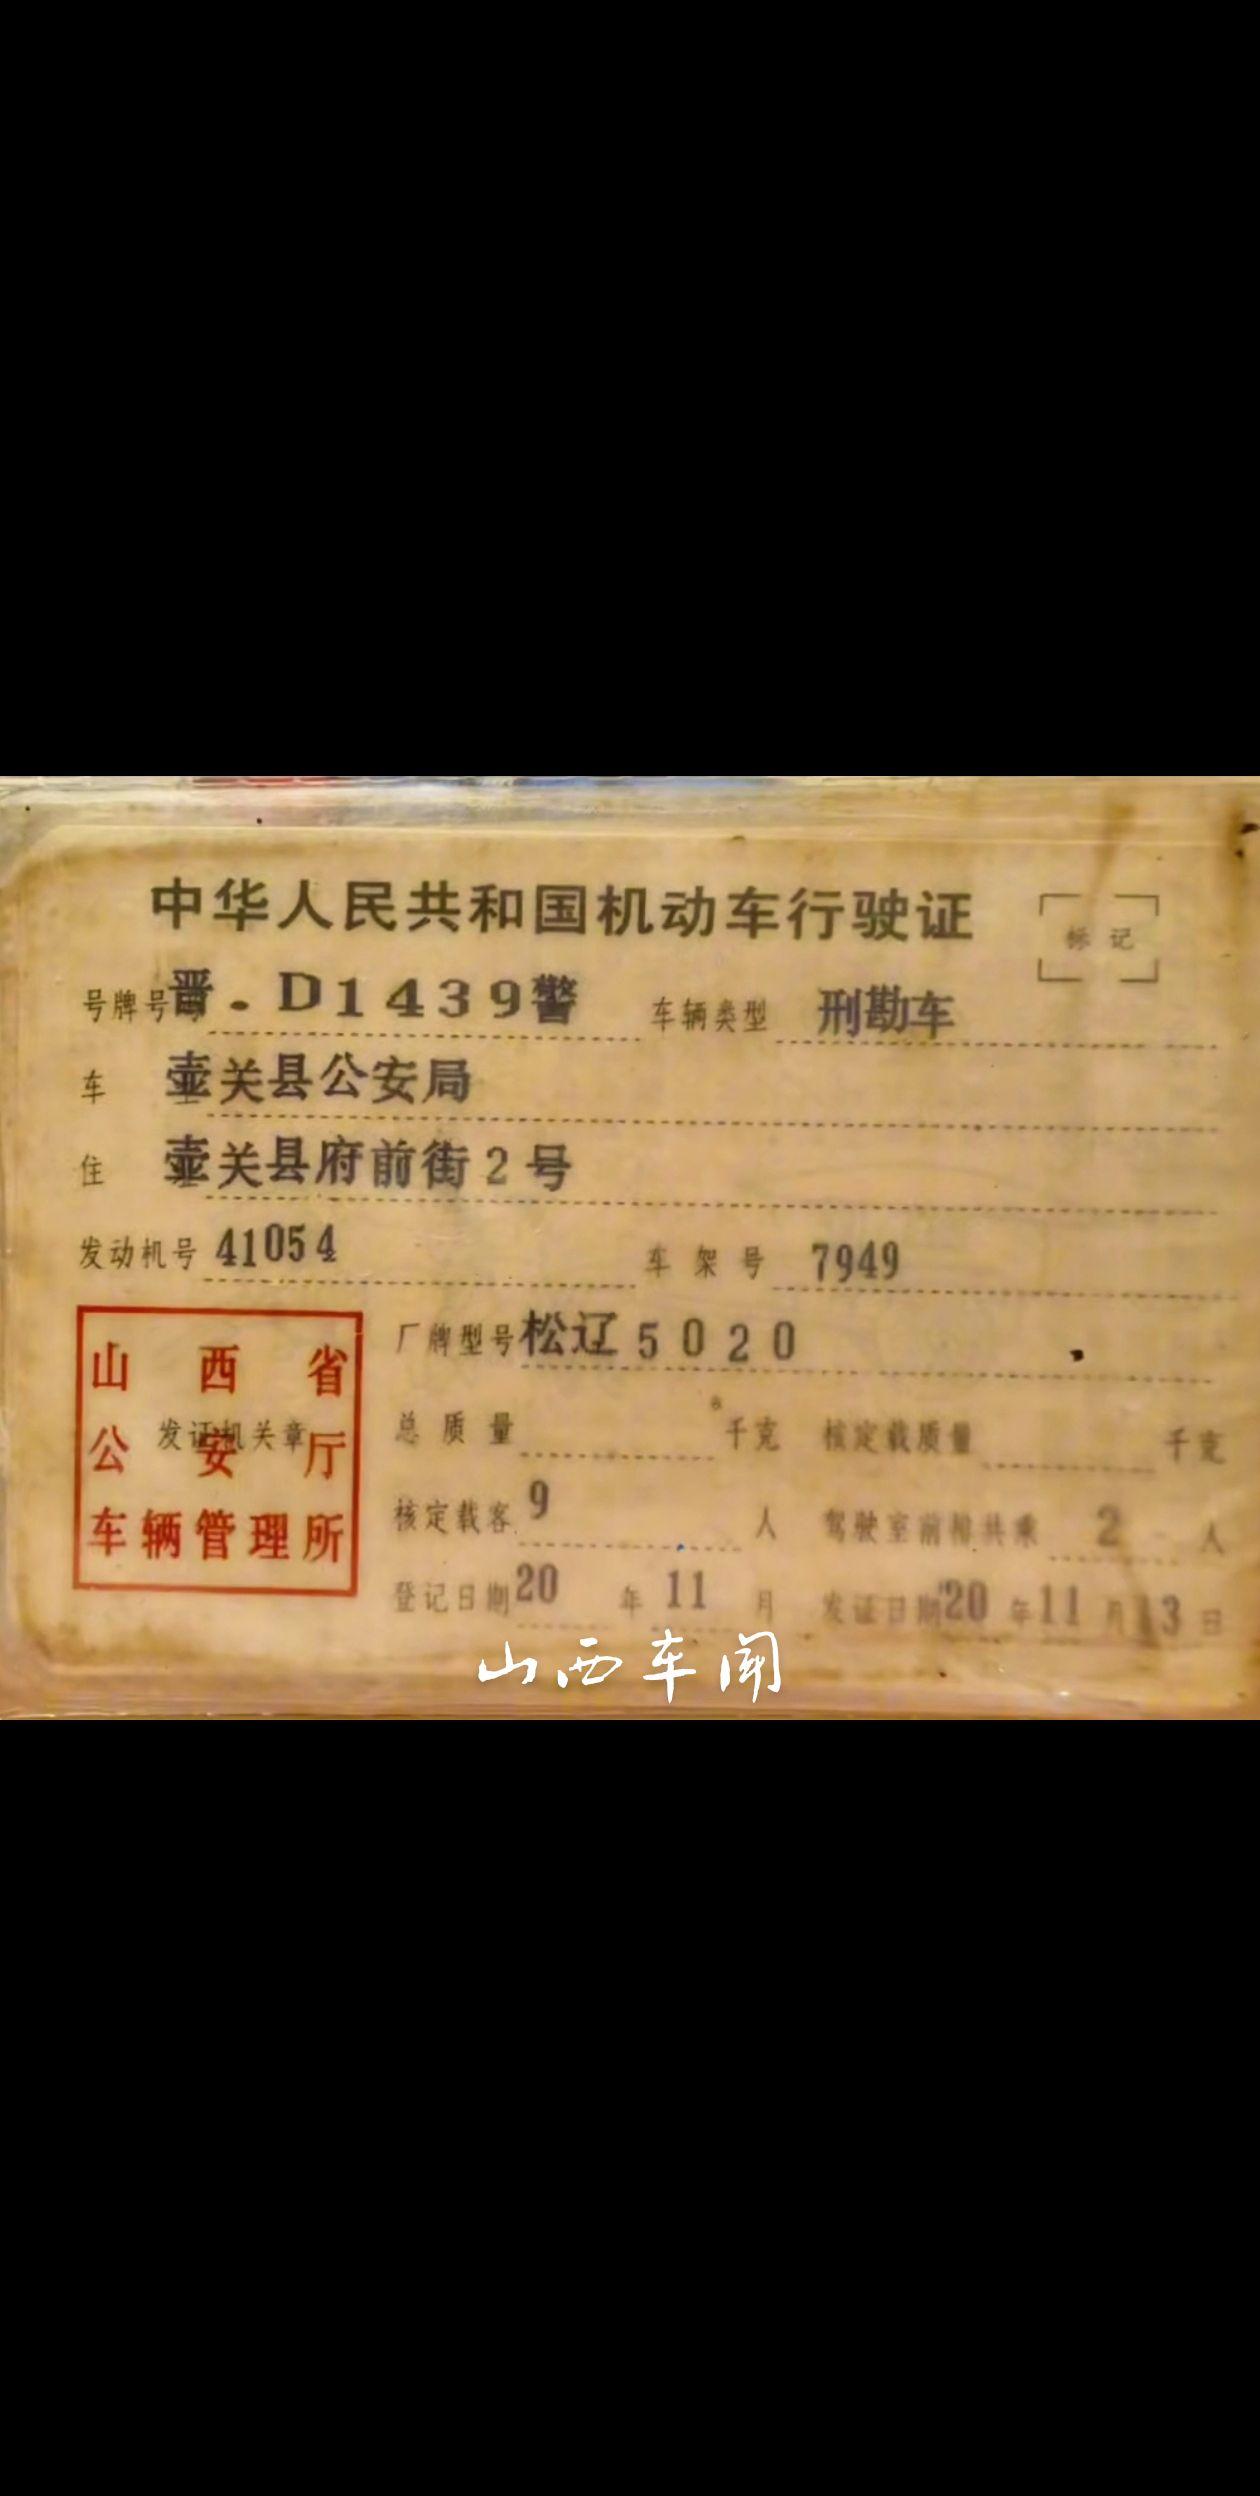 中华人民共和国机动车行驶证
标记
号牌号 晋.D1439警 车辆类型 刑勘车
车 壶关县公安局
住 壶关县府前街2号
发动机号 41054 车架号 7949
厂牌型号 松辽5020
山西省
公安厅
车辆管理所
发证机关章
总质量 千克 核定载质量 千克
核定载客 9 人 驾驶室前排共乘 2 人
登记日期 20 年 11 月 发证日期 20 年 11 月 13 日
山西车闻